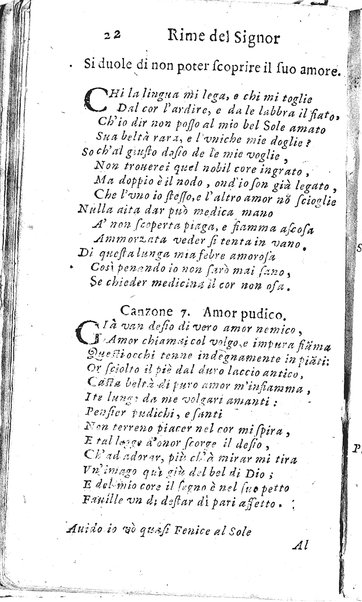 22 Rime del Signor
Si duole di non poter scoprire il suo amore.
CHi la lingua mi lega, e chi mi toglie
Dal cor l'ardire, e da le labbra il fiato,
Ch'io dir non posso al mio bel Sole amato
Sua beltà rara, e l'vniche mie doglie?
So ch'al giusto desio de le mie voglie,
Non trouerei quel nobil core ingrato,
Ma doppio è il nodo, ond'io son già legato,
Che l'vno io stesso, e l'altro amor nõ scioglie
Nulla aita dar può medica mano
A' non scoperta piaga, e fiamma ascosa
Ammorzata veder si tenta in vano.
Di questa lunga mia febre amorosa
Così penando io non sarò mai sano,
Se chieder medicina il cor non osa.
Canzone 7. Amor pudico.
GIà van desio di vero amor nemico,
Amor chiamai col volgo, e impura fiãma
Questi occhi tenne indegnamente in piãti:
Or sciolto il piè dal duro laccio antico,
Casta beltà di puro amor m'infiamma,
Ite lungi da me volgari amanti:
Pensier pudichi, e santi
Non terreno piacer nel cor mi spira,
E tal legge d'onor scorge il desio,
Ch'ad adorar, più ch'à mirar mi tira
Vn'imago qui giù del bel di Dio;
E del mio core il segno è nel suo petto
Fauille vn dì destar di pari affetto.
Auido io vò quasi Fenice al Sole
Al